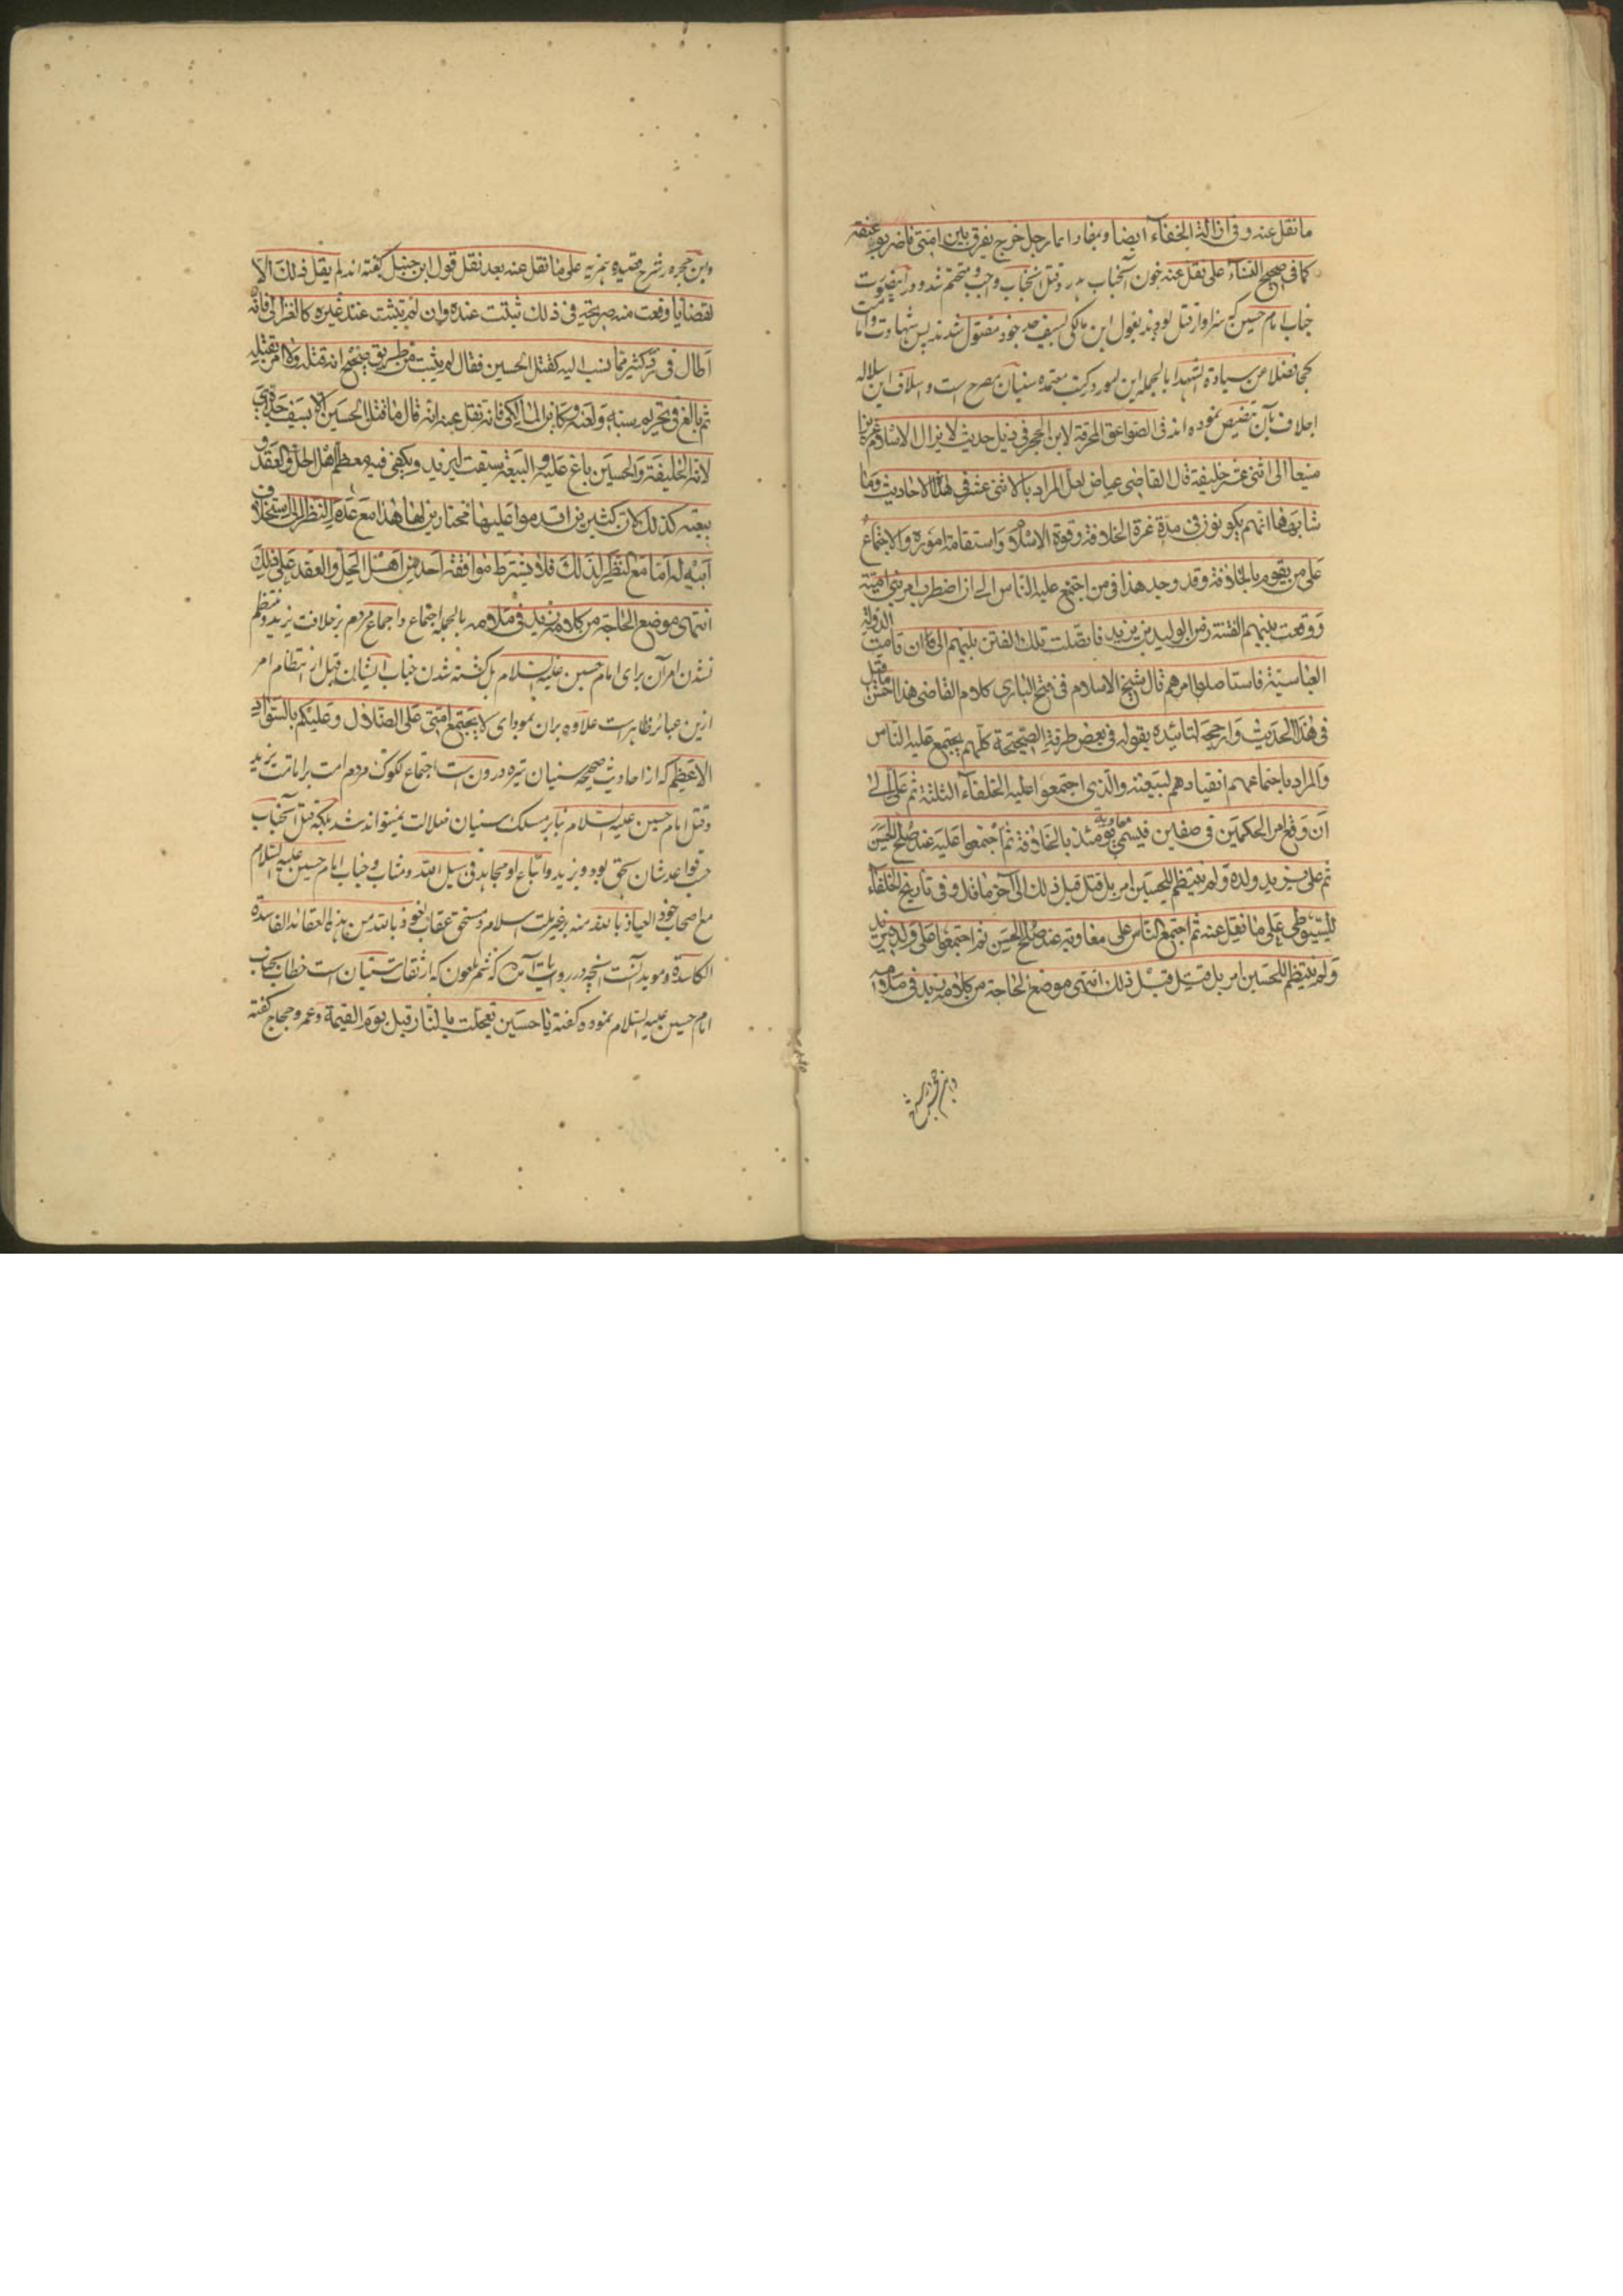 ما نقل عنه و فی ازالة الخفاء ایضا و بمفاد ایما رجل خرج یفرق بین امتی فاضربوا عنقه
کما فی صحیح النساء علی نقل عنه خون آنجناب هدر و قتل آنجناب واجب و متحتم شد و در اینصورت
جناب امام حسین که سزاوار قتل بودند بقول ابن مالکی بسیف جد خود مقتول شدند پس شهادت و امامت
کجا فضلا عن سیادة الشهدا بالجمله این امور در کتب معتمده سنیان مصرح است و اسلاف این سلاله
اجلاف بآن تنصیص نموده اند فی الصواعق المحرقة لابن الحجر فی ذیل حدیث لا یزال الاسلام عزیزا
منیعا الی اثنی عشر خلیفة قال القاضی عیاض لعل المراد بالاثنی عشر فی هذا الاحادیث وما
شابهها انهم یکونون فی مدة عزة الخلافة وقوة الاسلام واستقامة اموره والاجتماع
علی من یقوم بالخلافة وقد وجد هذا فی من اجتمع علیه الناس الی ان اضطرب امر بنی امیة
ووقعت بینهم الفتنة زمن الولید بن یزید فاتصلت تلک الفتن بینهم الی ان قامت الدولة
العباسیة فاستاصلوا امرهم قال شیخ الاسلام فی فتح الباری کلام القاضی هذا احسن ما قیل
فی هذا الحدیث وارجحه لتائیده بقوله فی بعض طرقه الصحیحة کلهم یجتمع علیه الناس
والمراد باجتماعهم انقیادهم لبیعته والذی اجتمعوا علیه الخلفاء الثلثة ثم علی الی
ان وقع امر الحکمین فی صفین فیسمی معاویة یومئذ بالخلافة ثم اجتمعوا علیه عند صلح الحسن
ثم علی یزید ولده ولم ینتظم للحسین امر بل قتل قبل ذلک الی آخر ما قال و فی تاریخ الخلفاء
للسیوطی علی ما نقل عنه ثم اجتمع الناس علی معاویة عند صلح الحسن ثم اجتمعوا علی ولده یزید
ولم ینتظم للحسین امر بل قتل قبل ذلک انتهی موضع الحاجة من کلامه زید فی ملامه
وابن حجر در شرح قصیده همزیه علی ما نقل عنه بعد نقل قول ابن حنبل گفته اند لم یقل ذلک الا
لقضایا وقعت منه صریحة فی ذلک ثبتت عنده وان لم تثبت عند غیره کالغزالی فانه
اطال فی رد کثیر مما نسب الیه کقتل الحسین فقال لم یثبت من طریق صحیح انه قتله ولا امر بقتله
ثم بالغ فی تحریم سبه ولعنه وکابن المالکی فانه نقل عنه انه قال ما قتل الحسین الا بسیف جده ای
لانه الخلیفة والحسین باغ علیه والبیعة سبقت لیزید ویکفی فیه معظم اهل الحل والعقد و
بیعته کذلک لان کثیرین اقدموا علیها مختارین لها هذا مع عدم النظر الی استخلاف
ابیه له اما مع النظر لذلک فلا یشترط موافقة احد من اهل الحل والعقد علی ذلک
انتهی موضع الحاجة من کلامه زید فی ملامه بالجمله اجتماع و اجماع مردم بر خلافت یزید و منتظم
نشدن امر آن برای امام حسین علیه السلام بل کشته شدن جناب ایشان قبل از انتظام امر
ازین عبائر ظاهرست علاوه بران بمودای لا یجتمع امتی علی الضلال وعلیکم بالسواد
الاعظم که از احادیث صحیحه سنیان تیره درون است اجتماع مردم امت بر امامت یزید
و قتل امام حسین علیه السلام بنابر مسلک سنیان ضلالت نمیتواند شد بلکه قتل آنجناب
حسب قواعد شان بحق بود و یزید و اتباع او مجاهد فی سبیل الله و مثاب و جناب امام حسین علیه السلام
مع اصحاب خود العیاذ بالله منه بر غیر ملت اسلام و مستحق عقاب نعوذ بالله من هذه العقائد الفاسدة
الکاسدة و موید آنست آنچه در روایات آمده که شمر ملعون که از ثقات سنیان است خطاب بجناب
امام حسین علیه السلام نموده گفته یا حسین تعجلت بالنار قبل یوم القیمة و عمرو حجاج گفته